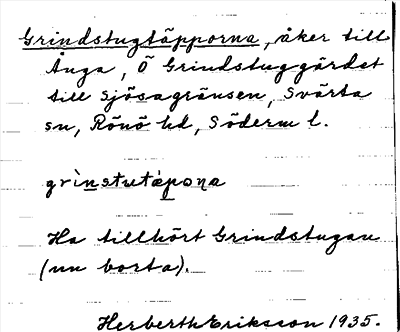 Grindstugtäpporna, åker till
Ånga, Ö Grindstuggärdet
till Sjösagränsen, Svärta
sn, Rönö hd, Söderm l.
grìnstutápoṇa
Ha tillhört Grindstugan
(nu borta).
Herberth Eriksson 1935.